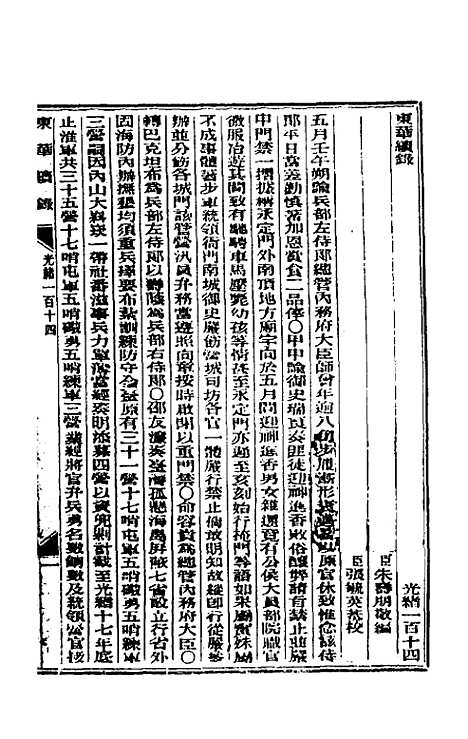 東華續錄
光緒一百十四
臣朱壽朋敬編
臣張毓英恭校
五月壬午朔諭兵部左侍郎總管內務府大臣師曾年逾八旬步履漸形以原官休致惟念該侍
郎平日當差勤慎著加恩賞食二品俸○甲申諭御史瑞良奏匪徒迎神進香敗俗釀弊請旨禁止並嚴
申門禁一摺據稱永定門外南頂地方廟宇向於五月間迎神進香男女雜遝竟有公侯大員部院職官
微服冶遊其間致有馳騁車馬壓斃幼孩等情甚至永定門亦遲至亥刻始行掩門等語如果屬實殊屬
不成事體著步軍統領衙門南城御史嚴飭營城司坊各官一體嚴行禁止倘敢明知故縱卽行從嚴參
辦並分飭各城門該管營汎員弁務當遵照向章按時啟閉以重門禁○命容貴為總管內務府大臣○
轉巴克坦布為兵部左侍郎以壽蔭為兵部右侍郎○邵友濂奏臺灣孤懸海島屏蔽七省設立行省外
固海防內辦撫墾均須重兵擇要布紮訓練防守全臺原有三十一營十七哨屯軍五哨礮勇五哨練軍
三營嗣因內山大嵙崁一帶社番滋事兵力單薄當經奏明添募四營以資兜剿計截至光緒十七年底
止淮軍共三十五營十七哨屯軍五哨礮勇五哨練軍三營業經將官弁兵勇名數餉數及統領營官銜
東華續錄
光緒一百十四